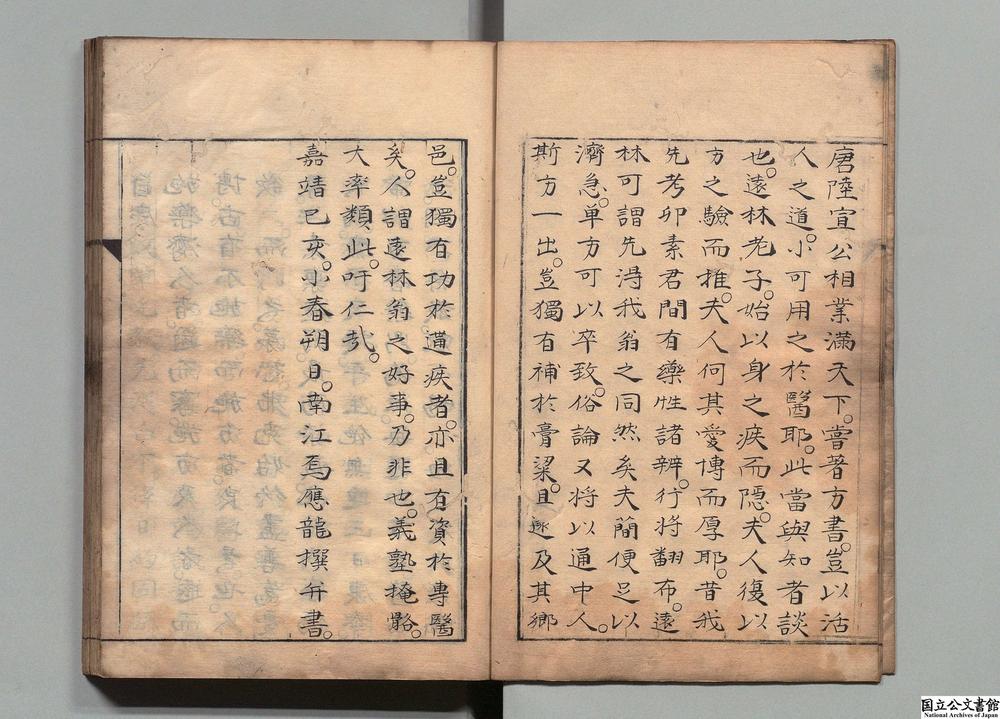 唐陸宣公相業滿天下。嘗著方書。豈以活
人之道。小可用之於醫耶。此當與知者談
也。遠林老子。始以身之疾而隱。夫人復以
方之驗而推。夫人何其愛博而厚耶。昔我
先考卯素君間有藥性諸辨。行將翻布。遠
林可謂先淂我翁之同然矣夫簡便足以
濟急。单方可以卒致。俗論又將以通中人。
斯方一出。豈獨有補於膏粱。且遂及其鄉
邑。豈獨有功於遘疾者。亦且有資於專醫
矣。人謂遠林翁之好事。乃非也。義塾掩骼。
大率類此。吁仁哉。
嘉靖己亥。小春朔日。南江馬應龍撰并書。
国立公文書館
National Archives of Japan